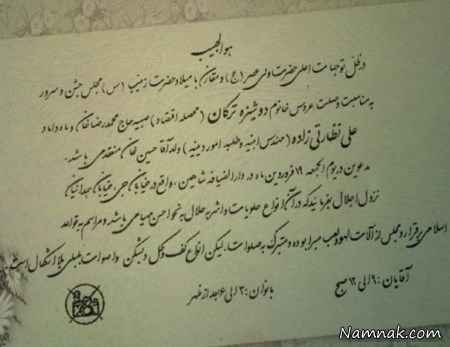 هو الحبیب
در ظل توجهات اعلی حضرت ولی عصر (عج) و مقارن با میلاد حضرت زینب (س) مجلس جشن و سرور
به مناسبت وصلت عروس خانوم دوشیزه ترکان (محصله اقتصاد) صبیه حاج محمدرضا خان و شاه داماد
علی نظارتی زاده (مهندس ابنیه و طلبه امور دینیه) ولد آقا حسین خان منعقد می باشد.
مدعوین در یوم الجمعه ۱۹ فروردین ماه در دارالضیافه شاهین، واقع در خیابان جی خیابان
نزول اجلال بفرمایند که در آن انواع حلویات و اشربه حلال به نحو احسن مهیا می باشد و مراسم به قواعد
اسلامی برقرار و مجلس از آلات لهو و لعب مبرا بوده و متبرک به صلوات، لیکن انواع کف و کل و بشکن و اصوات بلبلی بلا اشکال است.
آقایان: ۹ الی ۱۲ صبح
بانوان: ۳ الی ۶ بعد از ظهر
نمناک
Namnak.com